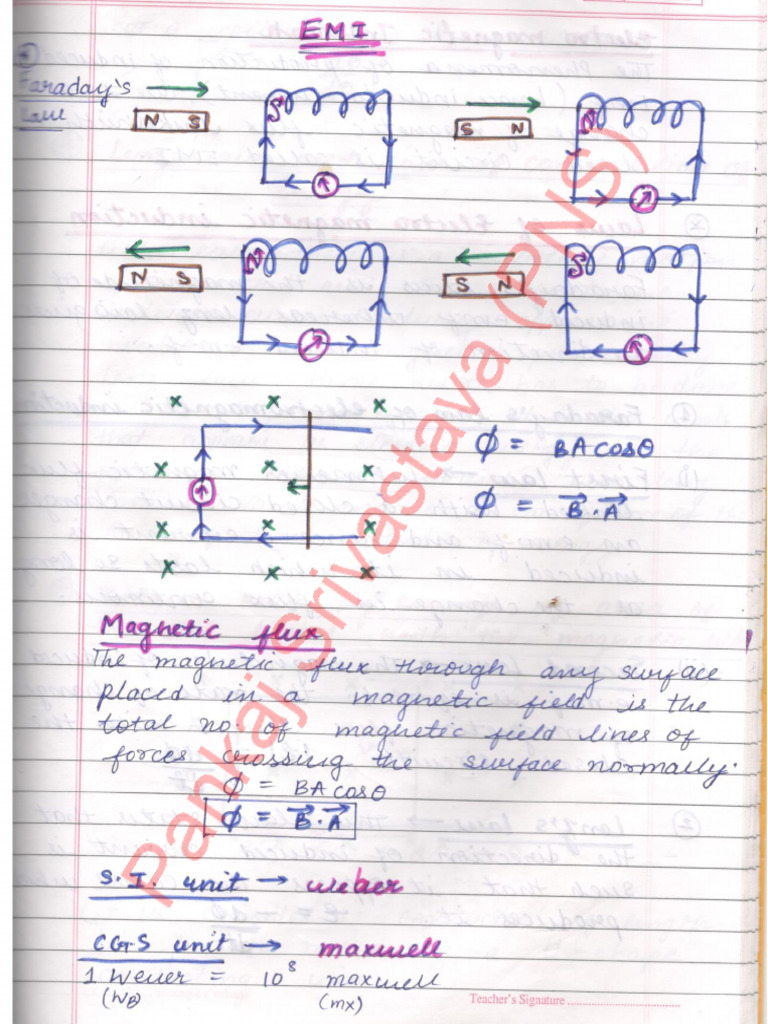 EMI
Faraday's
Law
N S
S
S N
N
N S
N
S N
S
x x x
x x x
x x x
x x x
ϕ = BA cosθ
ϕ = B⃗ . A⃗
Magnetic flux
The magnetic flux through any surface
placed in a magnetic field is the
total no. of magnetic field lines of
forces crossing the surface normally.
ϕ = BA cosθ
ϕ = B⃗ . A⃗
S.I. unit → weber
CGS unit → maxwell
1 Wever = 10⁸ maxwell
(WB) (mx)
Teacher's Signature
Pankaj Srivastava (PNS)